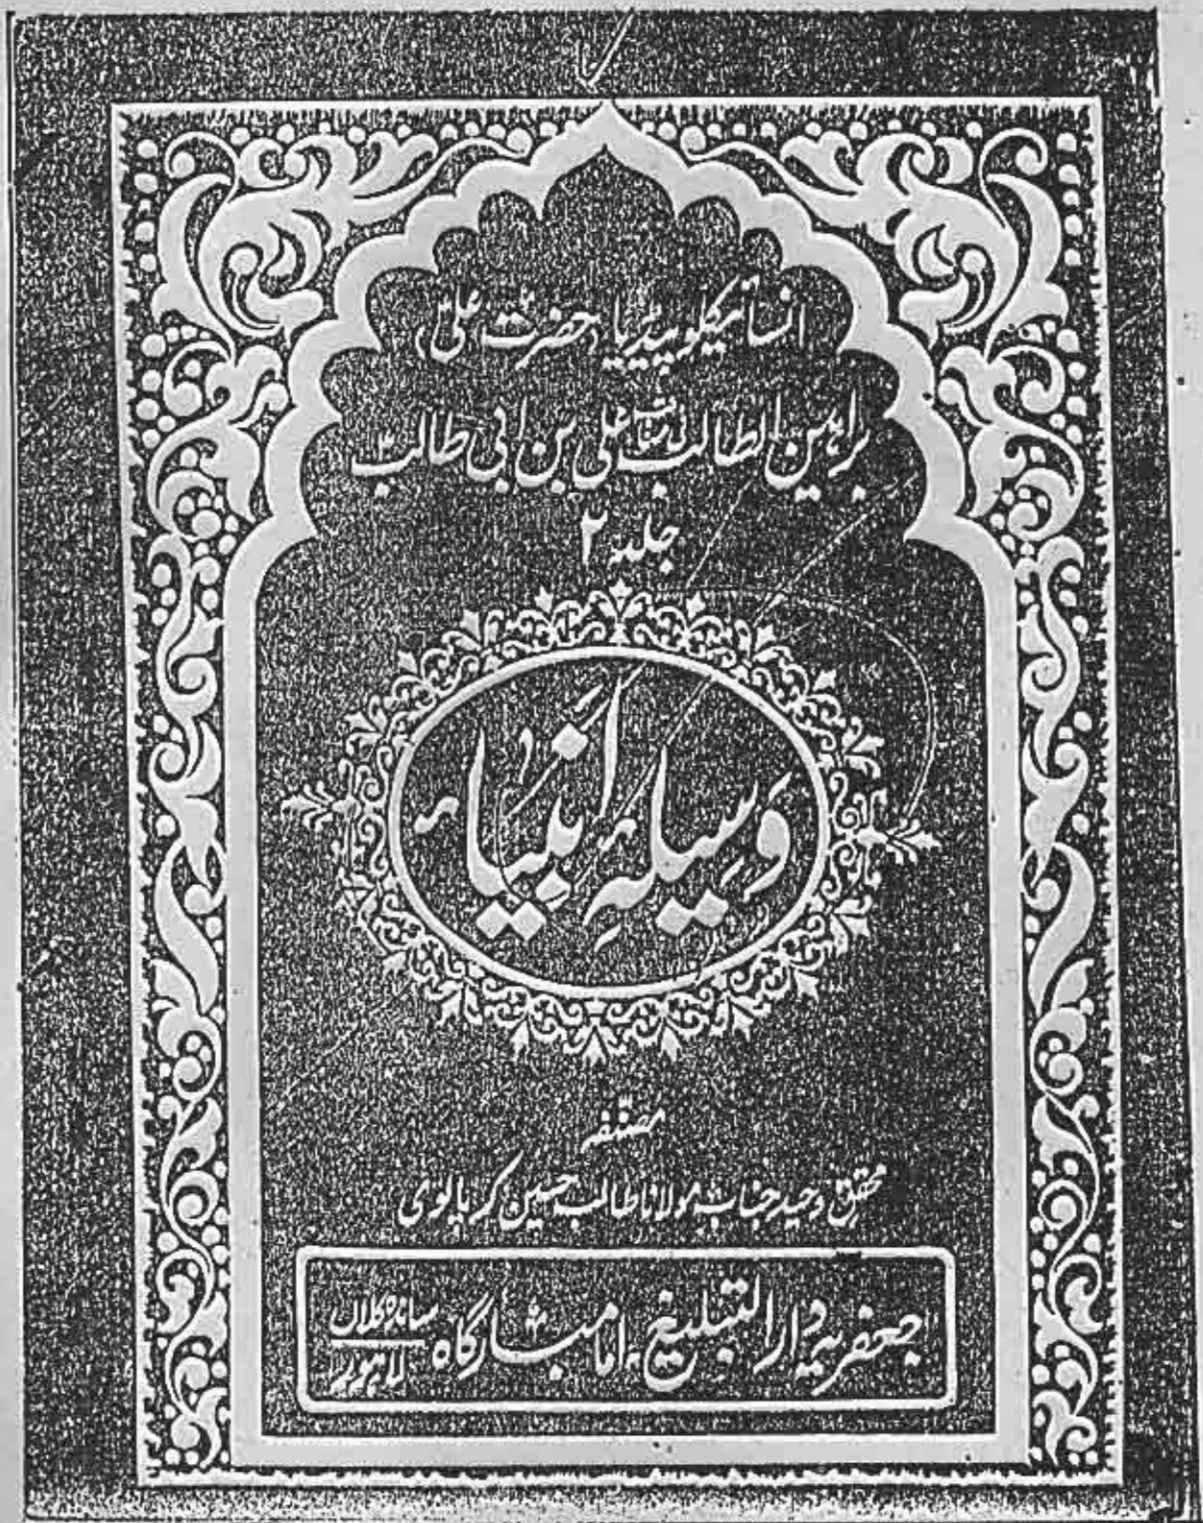 انسائیکلوپیڈیا حضرت علیؑ
براہین الطالب علی بن ابی طالبؑ
جلد ۲
وَسِیلۂ اَنبیَاء
مصنّفہ
محقق وحید جناب مولانا طالب حسین کرپالوی
جعفریہ دار التبلیغ امامبارگاہ سانده کلاں لاہور